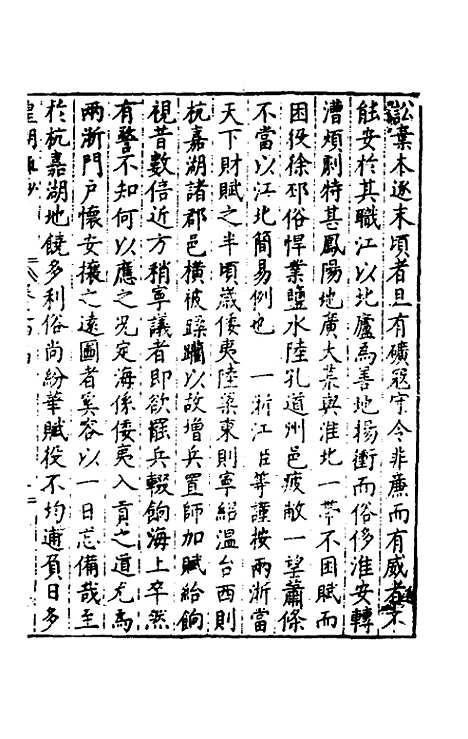 訟棄本逐末頃者且有礦冦守令非廉而有威者不
能安於其職江以北廬為善地揚衝而俗侈淮安轉
漕煩劇特甚鳳陽地廣大荒與淮北一帶不困賦而
困役徐邳俗悍業鹽水陸孔道州邑疲敝一望蕭條
不當以江北簡易例也　一浙江臣等謹按兩浙當
天下財賦之半頃嵗倭夷陸梁東則寧紹溫台西則
杭嘉湖諸郡邑橫被蹂躪以故增兵置師加賦給餉
視昔數倍近方稍寧議者即欲罷兵輟餉海上卒然
有警不知何以應之况定海係倭夷入貢之道尤為
兩浙門户懷安攘之遠圖者奚容以一日忘備哉至
於杭嘉湖地饒多利俗尚紛華賦役不均逋負日多
皇明